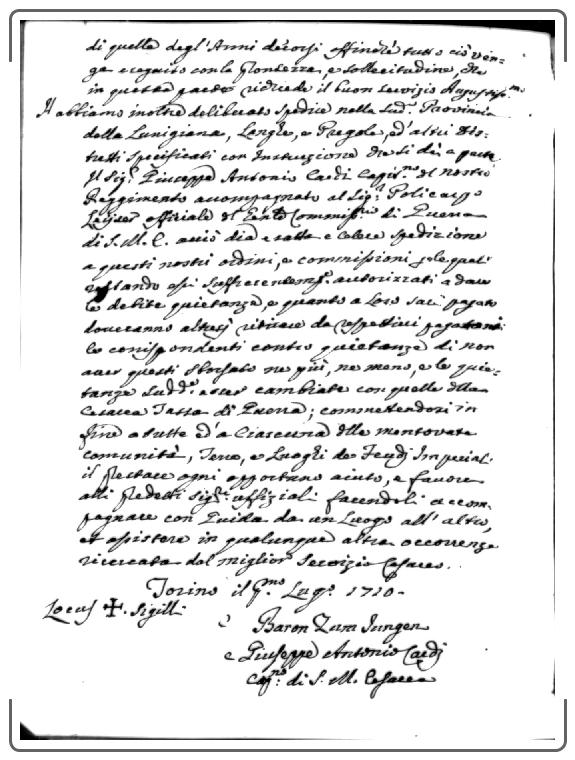 di quelle degl'Anni decorsi affinche tutto ciò ven-
ga eseguito con la prontezza, e sollecitudine, che
in questa parte richiede il buon Servizio Augustiss.mo
Habbiamo inoltre deliberato spedire nella Sud.a Provincia
della Lunigiana, Langhe, e Pregole, ed'altri dis-
tretti specificati con Instruzione che si dà a parte
Il Sig.r Giuseppe Antonio Cardi Capit.no del nostro
Reggimento accompagnato al Sig.r Policarpo
offiziale del Commiss.rio di Guerra
di S. M. C. acciò dia esatta e celere spedizione
a questi nostri ordini, e commissioni per le quali
restando essi sufficentem.e autorizzati a dare
le debite quietanze, e quanto a Loro sarà pagato
doveranno altresì ritirare da respettivi pagatori
le corrispondenti contro quietanze di non
aver questi sborsato ne più, ne meno, e le quie-
tanze sudd.e esser cambiate con quelle della
Cesarea Cassa di Guerra; commettendosi in
fine a tutte ed'a Ciascuna delle mentovate
comunità, Terre, e Luoghi de Feudj Imperiali
il prestare ogni opportuno aiuto, e favore
alli predetti Sig.ri offiziali facendoli accom-
pagnare con Guida da un Luogo all'altro,
et assistere in qualunque altra occorrenza
ricercata dal miglior Servizio Cesareo.
Torino il p.mo Lug.o 1710.
Locus ✠ Sigilli
Baron Zum Jungen
e Giuseppe Antonio Cardj
Cap.no di S. M. Cesarea